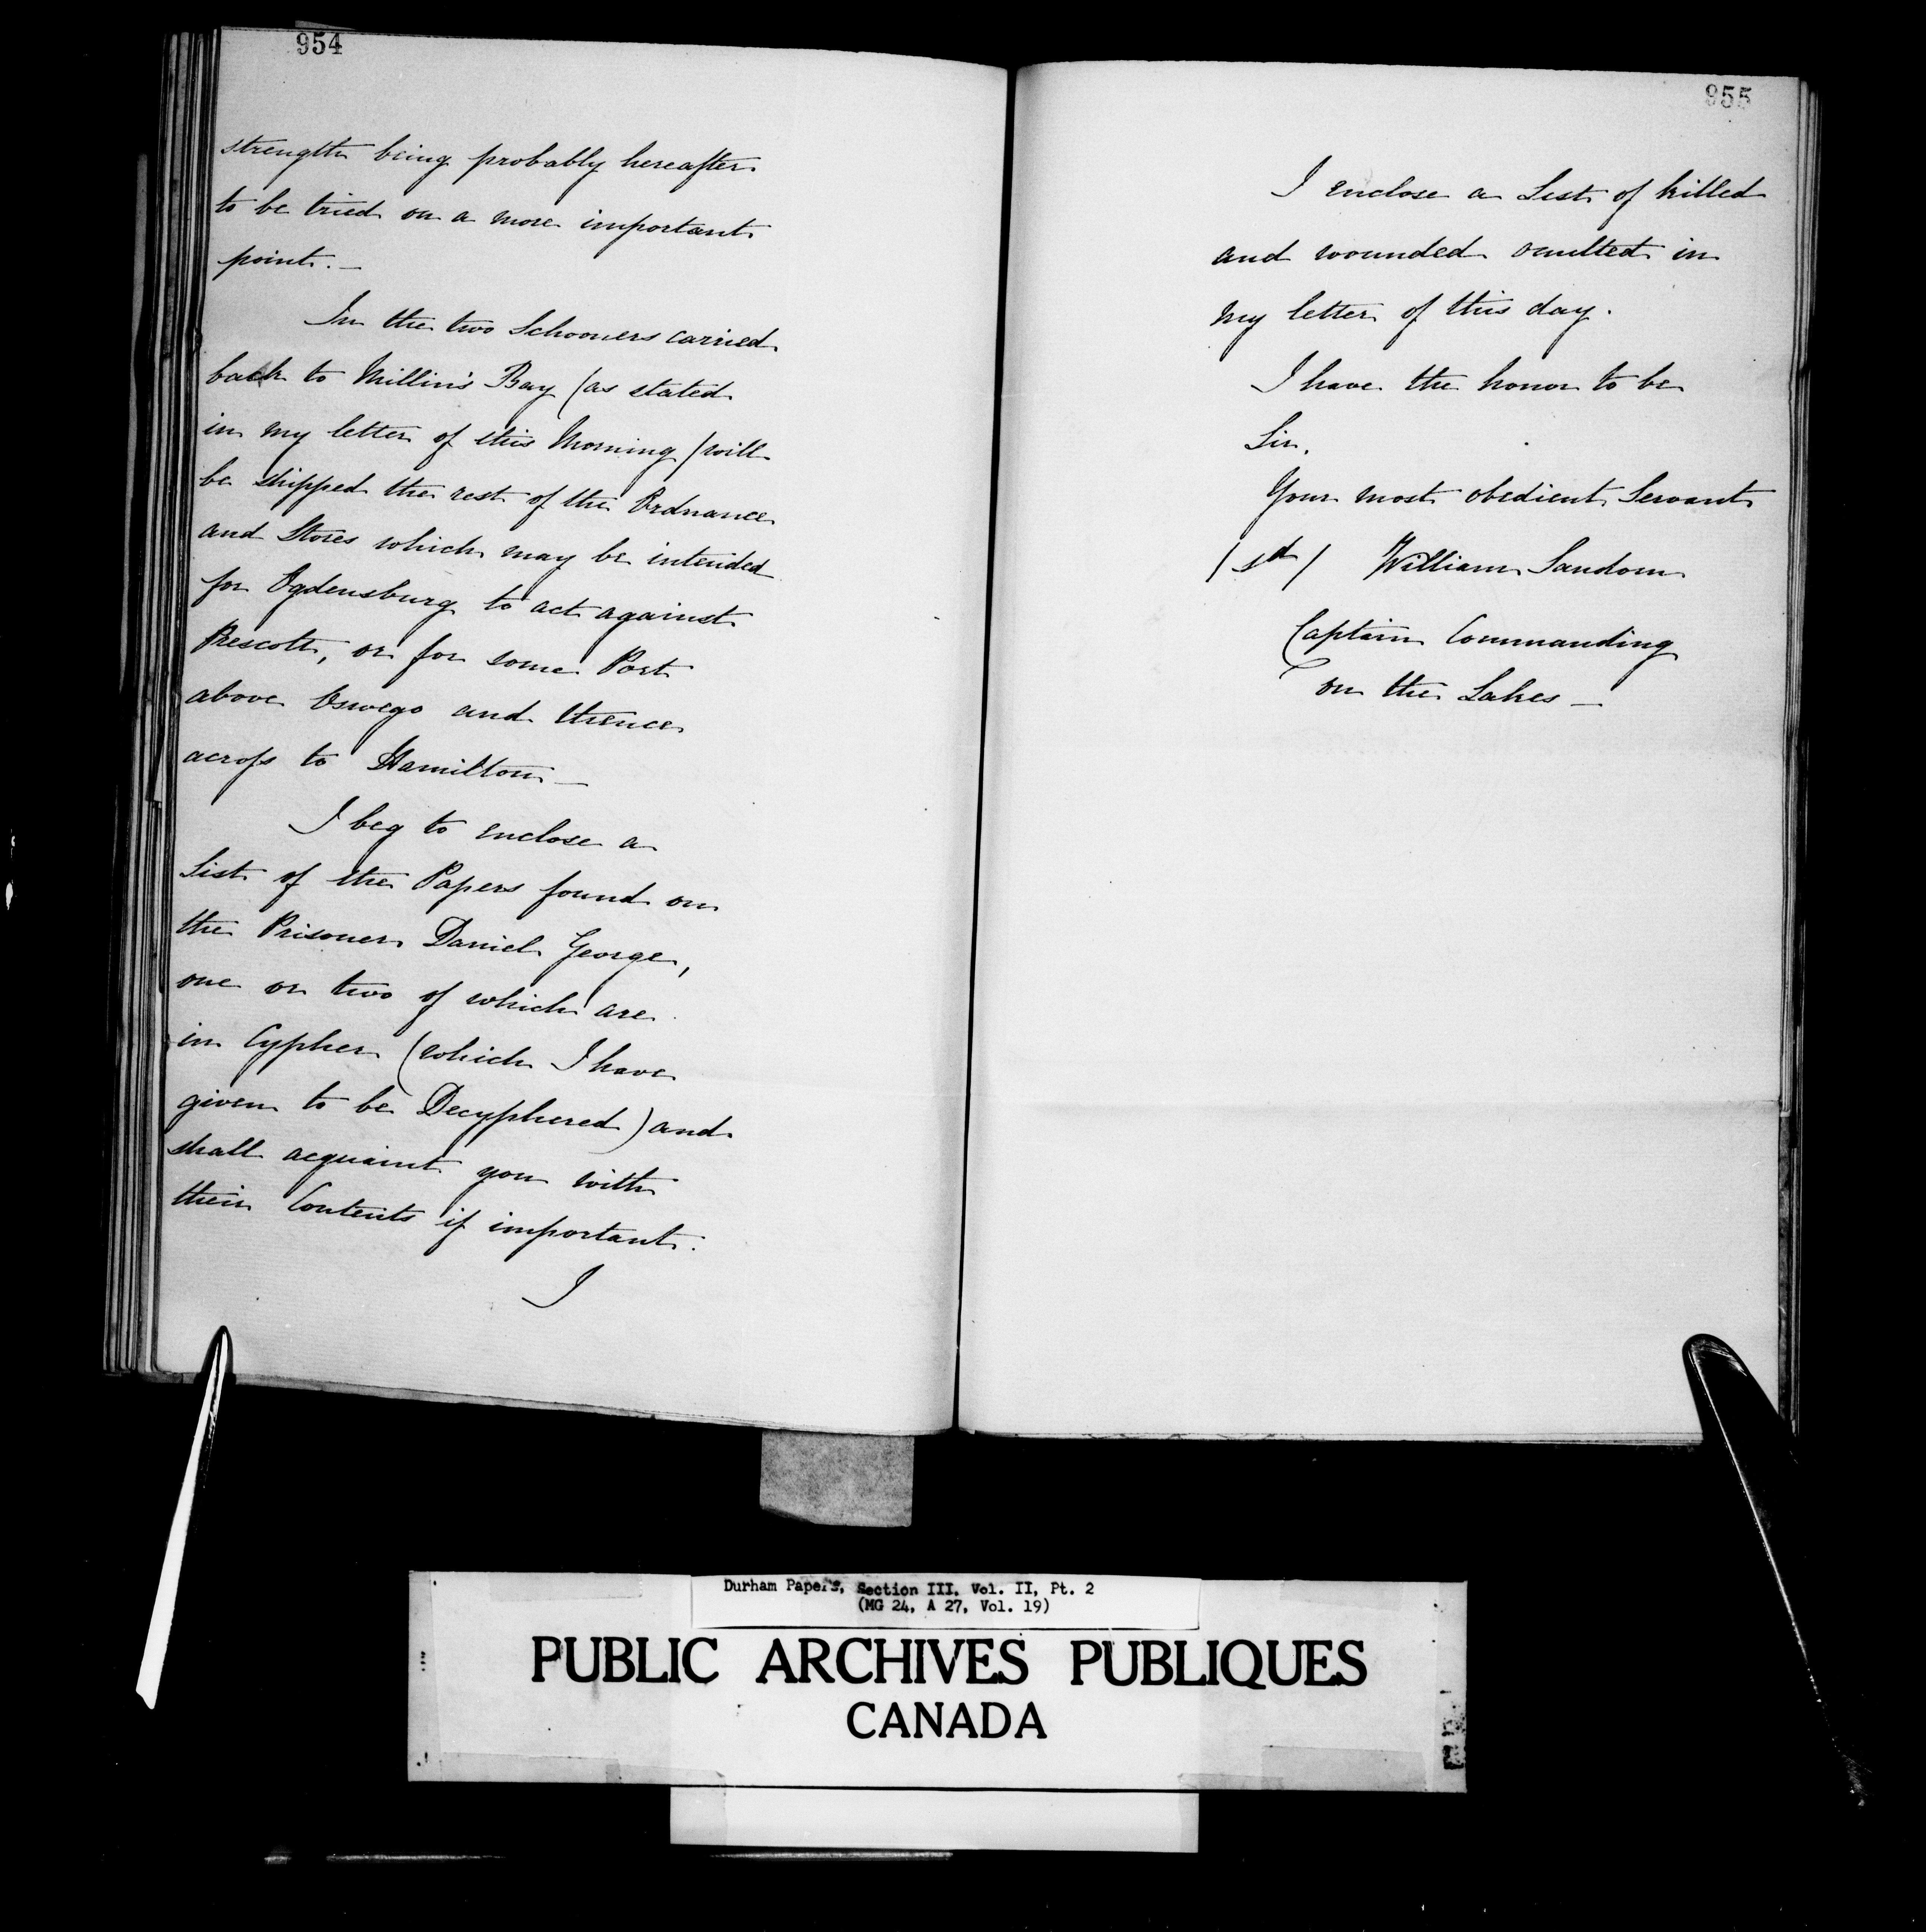 954
strength being probably hereafter
to be tried on a more important
point. —
In the two Schooners carried
back to Millin's Bay (as stated
in my letter of this Morning) will
be shipped the rest of the Ordnance
and Stores which may be intended
for Ogdensburg to act against
Prescott, or for some Port
above Oswego and thence
across to Hamilton —
I beg to enclose a
List of the Papers found on
the Prisoner Daniel George,
one or two of which are
in Cypher (which I have
given to be Decyphered) and
shall acquaint you with
their Contents if important.
I
955
I enclose a List of killed
and wounded omitted in
my letter of this day.
I have the honor to be
Sir,
Your most obedient Servant
(sd) William Sandom
Captain Commanding
on the Lakes —
Durham Papers, Section III, Vol. II, Pt. 2
(MG 24, A 27, Vol. 19)
PUBLIC ARCHIVES PUBLIQUES
CANADA